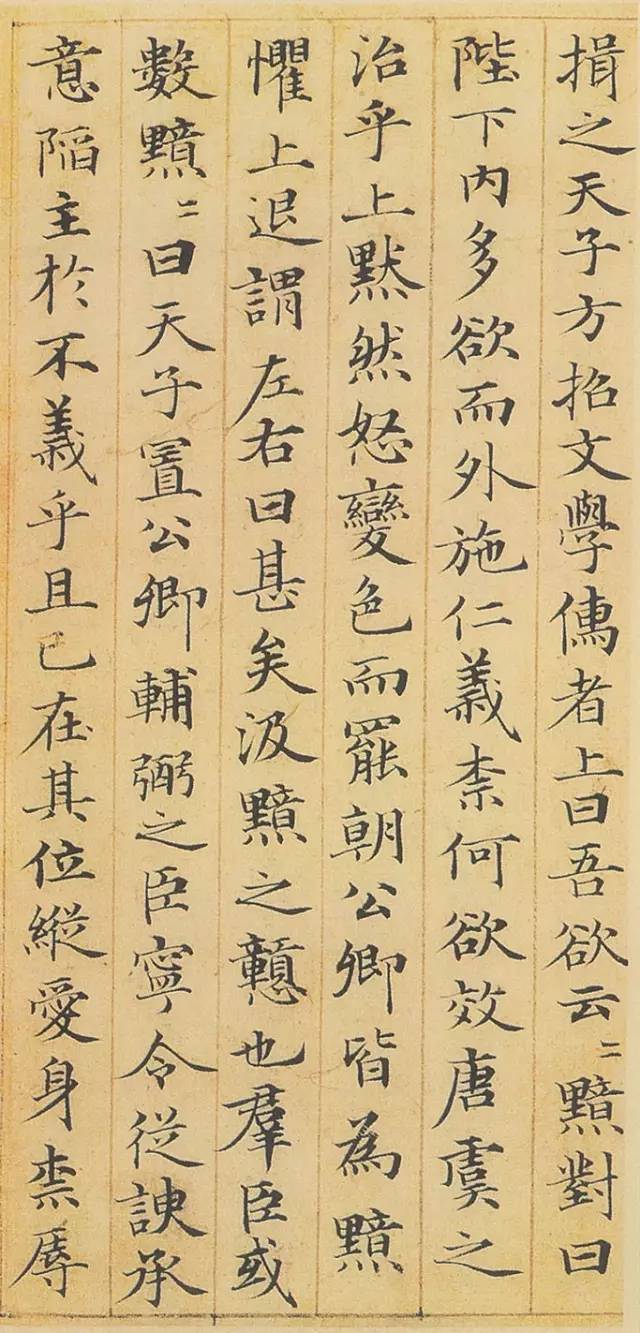 揖之天子方招文學儒者上曰吾欲云二黯對曰
陛下內多欲而外施仁義柰何欲效唐虞之
治乎上默然怒變色而罷朝公卿皆為黯
懼上退謂左右曰甚矣汲黯之戇也羣臣或
數黯二曰天子置公卿輔弼之臣寧令從諛承
意陷主於不義乎且已在其位縱愛身柰辱